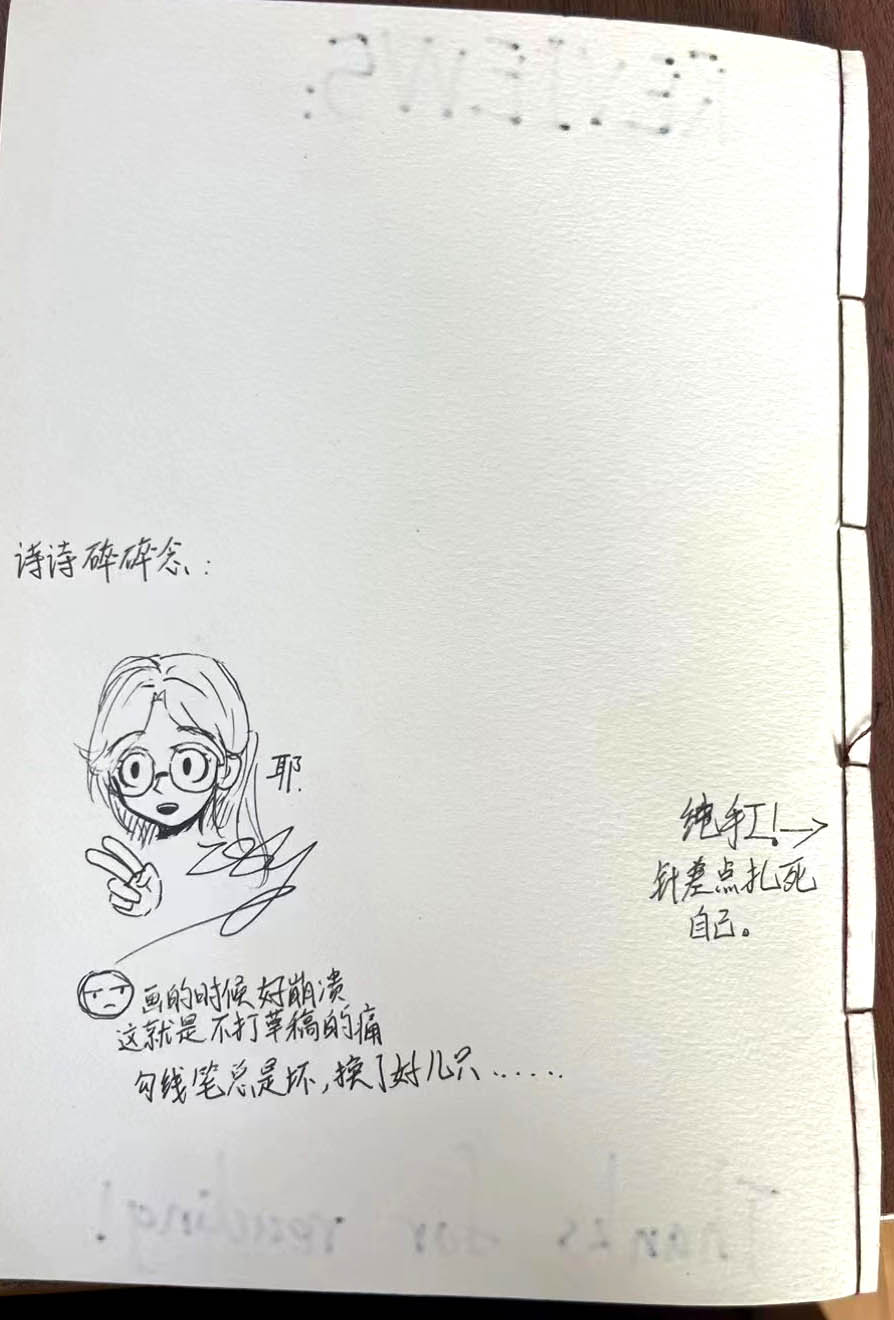 REVIEWS:
诗诗碎碎念:
耶.
纯手工!→
针差点扎死
自己。
画的时候好崩溃
这就是不打草稿的痛
勾线笔总是坏,换了好几只......
Thanks for reading!